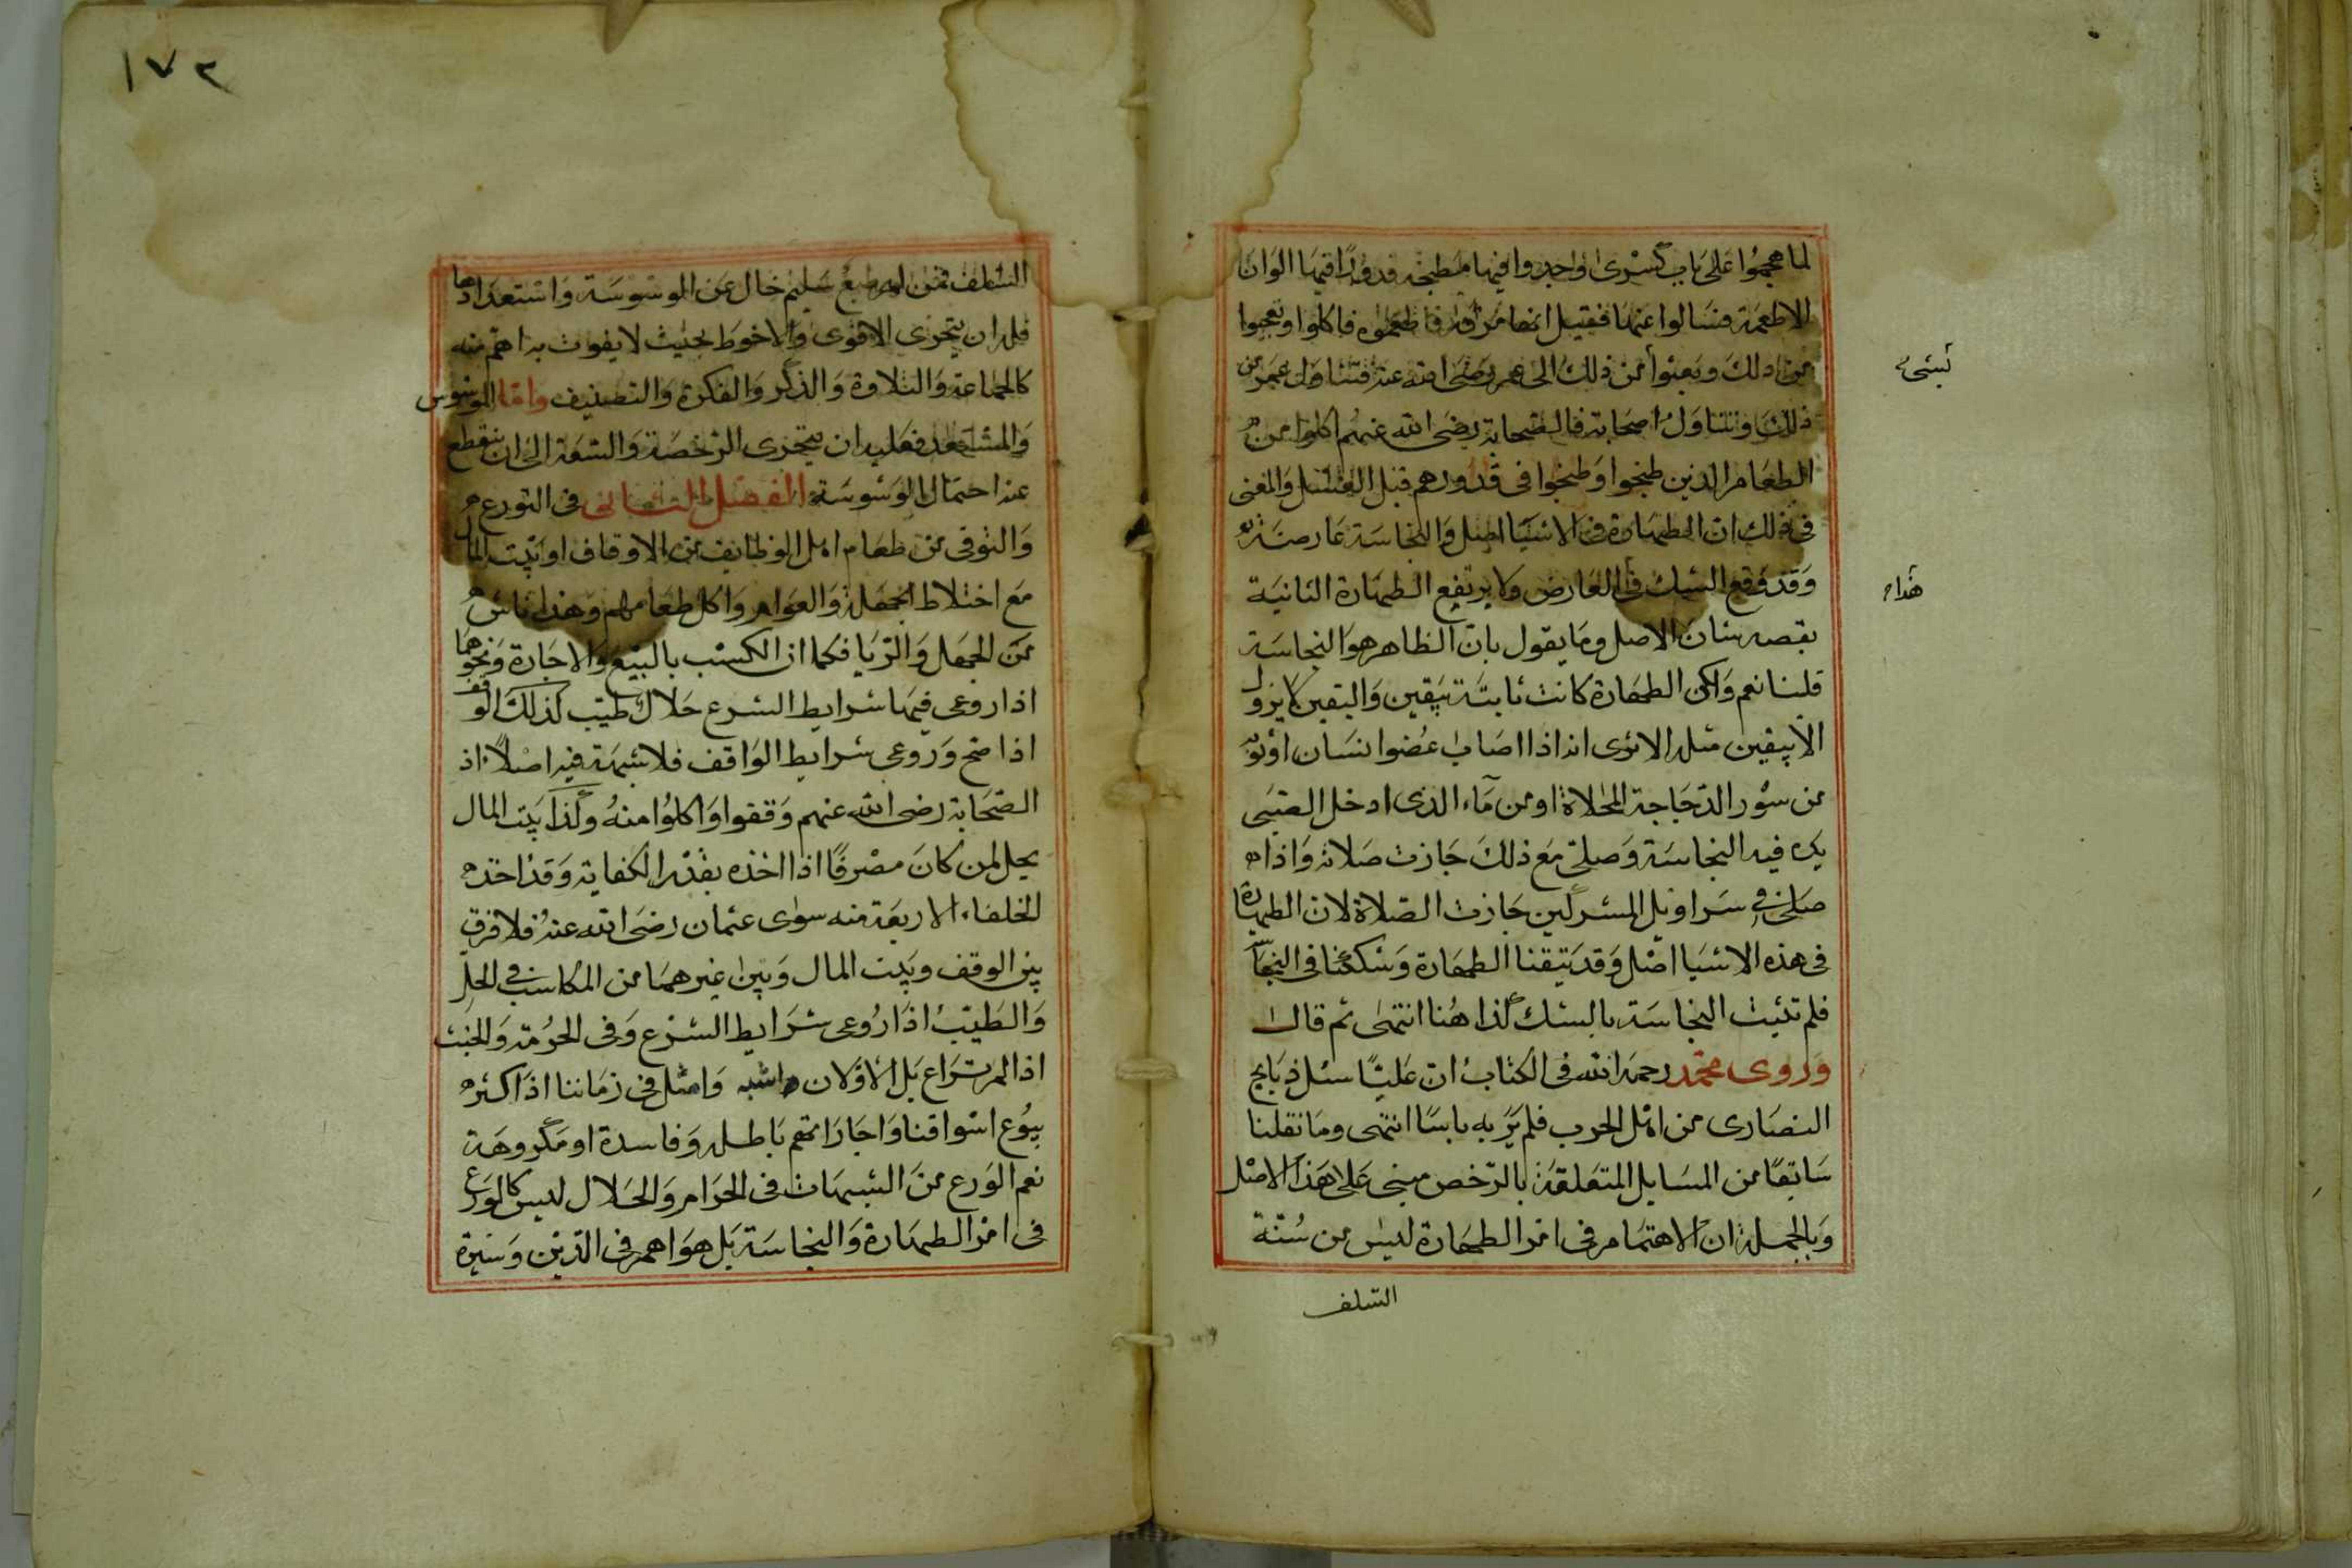 لما هجموا على باب كسرى واجدوا فيها مطبخه قدورا فيها الوان
الاطعمة فسالوا عنها فقيل انها مرقة فاطعموه فاكلوا وتعجبوا
من ذلك وبعثوا من ذلك الى عمر رضى الله عنه فتناول عمر من
ذلك وتناول اصحابه فالصحابة رضى الله عنهم اكلوا من
الطعام الذين طبخوا وطبخوا فى قدورهم قبل الغسل والمغنى
فى ذلك ان الطهارة فى الاشيا اصل والنجاسة عارضة
وقد وقع الشك فى العارض ولا يرتفع الطهارة الثانية
بقصه بشان الاصل وما يقول بان الظاهر هو النجاسة
قلنا نعم ولكن الطهارة كانت ثابتة بيقين واليقين لا يزول
الا بيقين مثله الا ترى انه اذا اصاب عضو انسان او ثوبه
من سؤر الدجاجة المخلاة او من ماء الذى ادخل الصبى
يده فيه النجاسة وصلى مع ذلك جازت صلاته واذا
صلى فى سراويل المشركين جازت الصلاة لان الطهارة
فى هذه الاشيا اصل وقد تيقنا الطهارة وشككنا فى النجاسة
فلم تثبت النجاسة بالشك كذا هنا انتهى ثم قال
وروى محمد رحمه الله فى الكتاب ان عليا سئل ذبايح
النصارى من اهل الحرب فلم ير به باسا انتهى وما نقلنا
سابقا من المسايل المتعلقة بالرخص مبنى على هذا الاصل
وبالجملة ان الاهتمام فى امر الطهارة ليس من سنة
السلف
بشىء
هذا
١٧٢
السلف فمن له طبع سليم خال عن الوسوسة واستعدادها
فله ان يتحرى الاقوى والاحوط بحيث لا يفوت به اهم منه
كالجماعة والتلاوة والذكر والفكرة والتصنيف واما الموسوس
والمستعد فعليه ان يتحرى الرخصة والسعة الى ان ينقطع
عنه احتمال الوسوسة الفصل الثانى فى التورع
والتوقى من طعام اهل الوظايف من الاوقاف او بيت المال
مع اختلاط الجهلة والعوام واكل طعامهم وهذا ناش
من الجهل والريا فكما ان الكسب بالبيع والاجارة ونحوهما
اذا روعى فيها شرايط الشرع حلال طيب كذلك الوقف
اذا صح وروعى شرايط الواقف فلا شبهة فيه اصلا اذ
الصحابة رضى الله عنهم وقفوا واكلوا منه وكذا بيت المال
يحل لمن كان مصرفا اذا اخذه بقدر الكفاية وقد اخذه
الخلفاء الاربعة منه سوى عثمان رضى الله عنه فلا فرق
بين الوقف وبيت المال وبين غيرهما من المكاسب فى الحل
والطيب اذا روعى شرايط الشرع وفى الحرمة والخبث
اذا لم تراع بل الاولان اشبه وامثل فى زماننا اذ اكثر
بيوع اسواقنا واجاراتهم باطله وفاسدة او مكروهة
نعم الورع من الشبهات فى الحرام والحلال ليس كالورع
فى امر الطهارة والنجاسة بل هو اهم فى الدين وسيرة